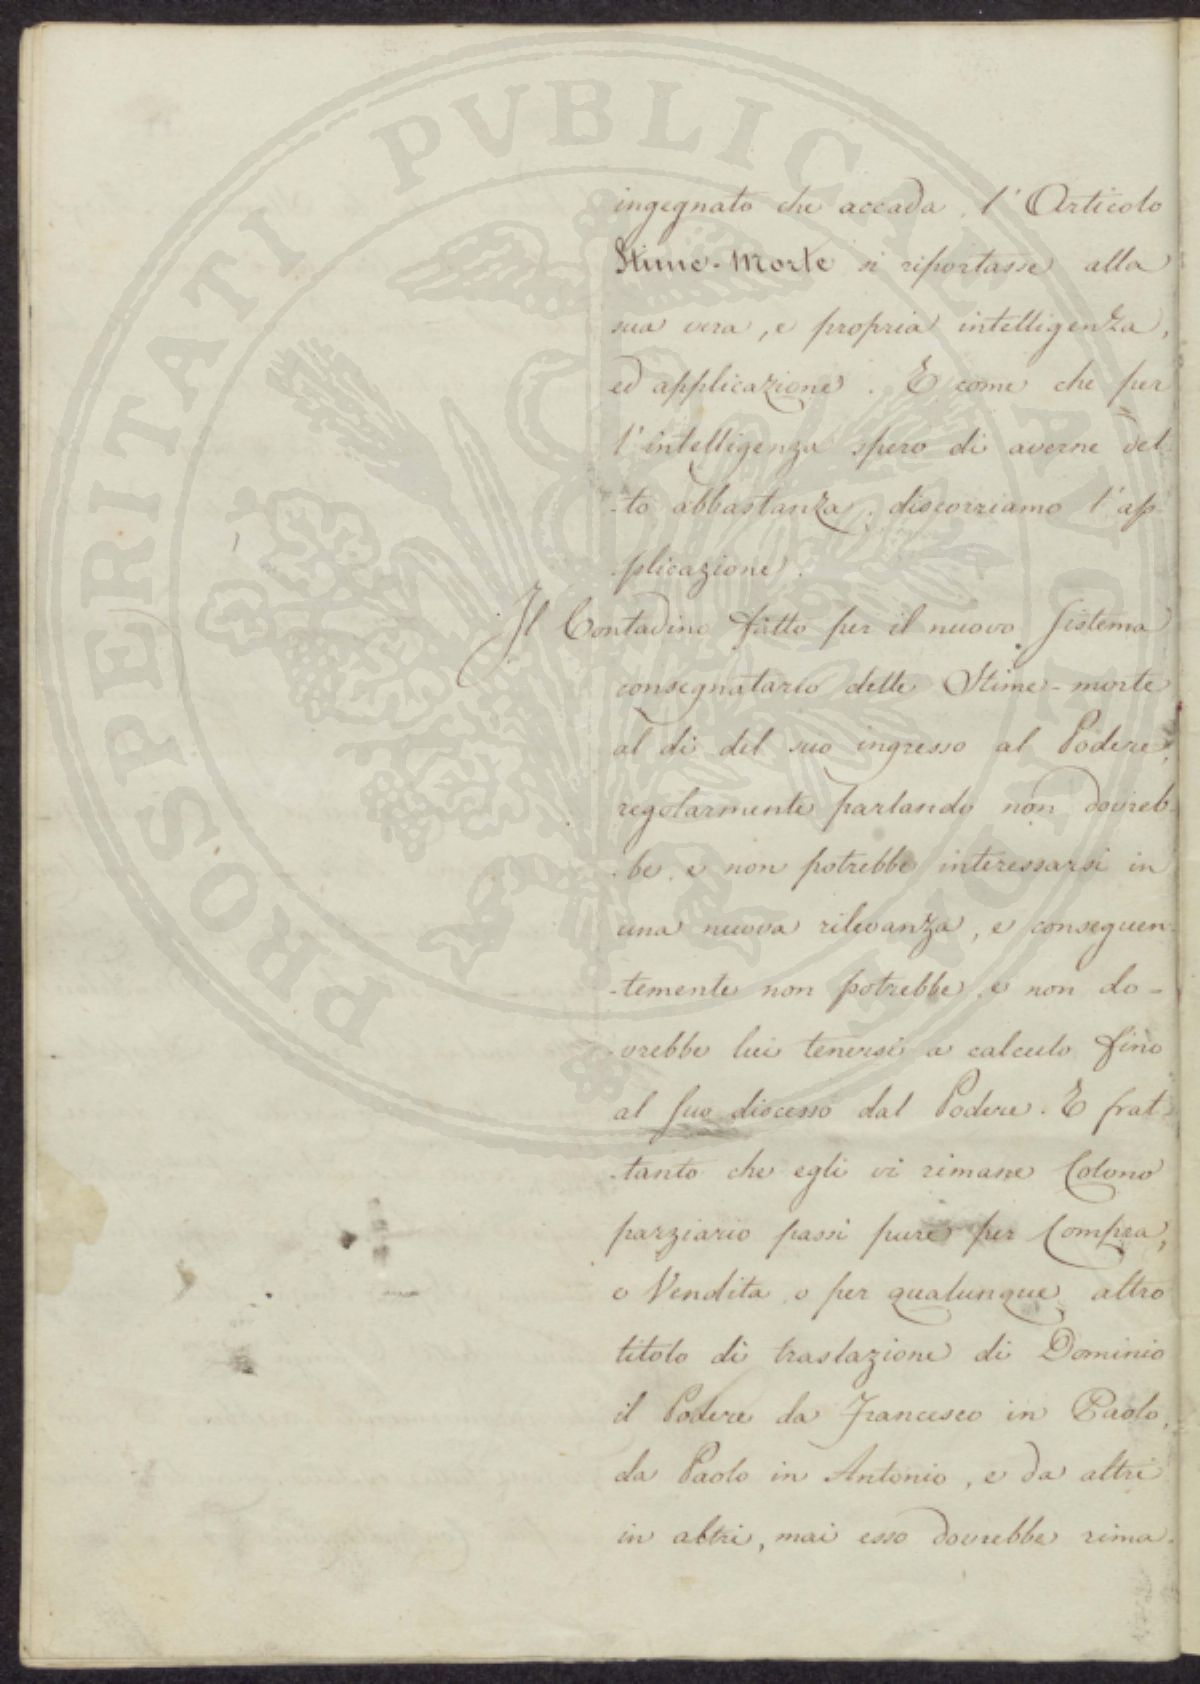 PROSPERITATI PVBLICAE AVGENDAE
ingegnato che accada, l'Articolo
Stime-Morte si riportasse alla
sua vera, e propria intelligenza,
ed applicazione. E come che per
l'intelligenza spero di averne det
-to abbastanza, discorriamo l'ap-
plicazione.
Il Contadino fatto per il nuovo Sistema
consegnatario delle Stime-morte
al di del suo ingresso al Podere,
regolarmente parlando non dovreb-
-be, e non potrebbe interessarsi in
una nuova rilevanza, e conseguen-
-temente non potrebbe, e non do-
-vrebbe lui tenersi a calculo fino
al suo discesso dal Podere. E frat-
-tanto che egli vi rimane Colono
parziario passi pure per Compra,
e Vendita, o per qualunque altro
titolo di traslazione di Dominio
il Podere da Francesco in Paolo,
da Paolo in Antonio, e da altri
in altri, mai esso dovrebbe rima-